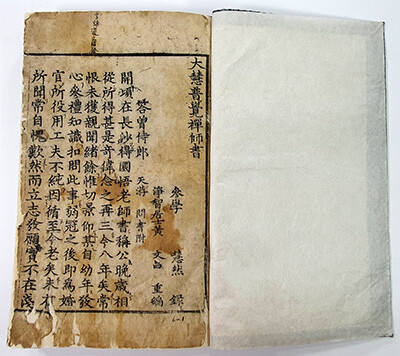 大慧普覺禪師書
參學 慧然 錄
淨智居士黃 文昌 重編
答曾侍郎
天游 問書附
開頃在長沙得圜悟老師書稱公晚歲相
從所得甚是奇偉念之再三今八年矣常
恨未獲親聞緖餘惟切景仰某自幼年發
心參禮知識扣問此事弱冠之後即爲婚
官所役用工夫不純因循至今老矣未有
所聞常自愧歎然而立志發願實不在淺